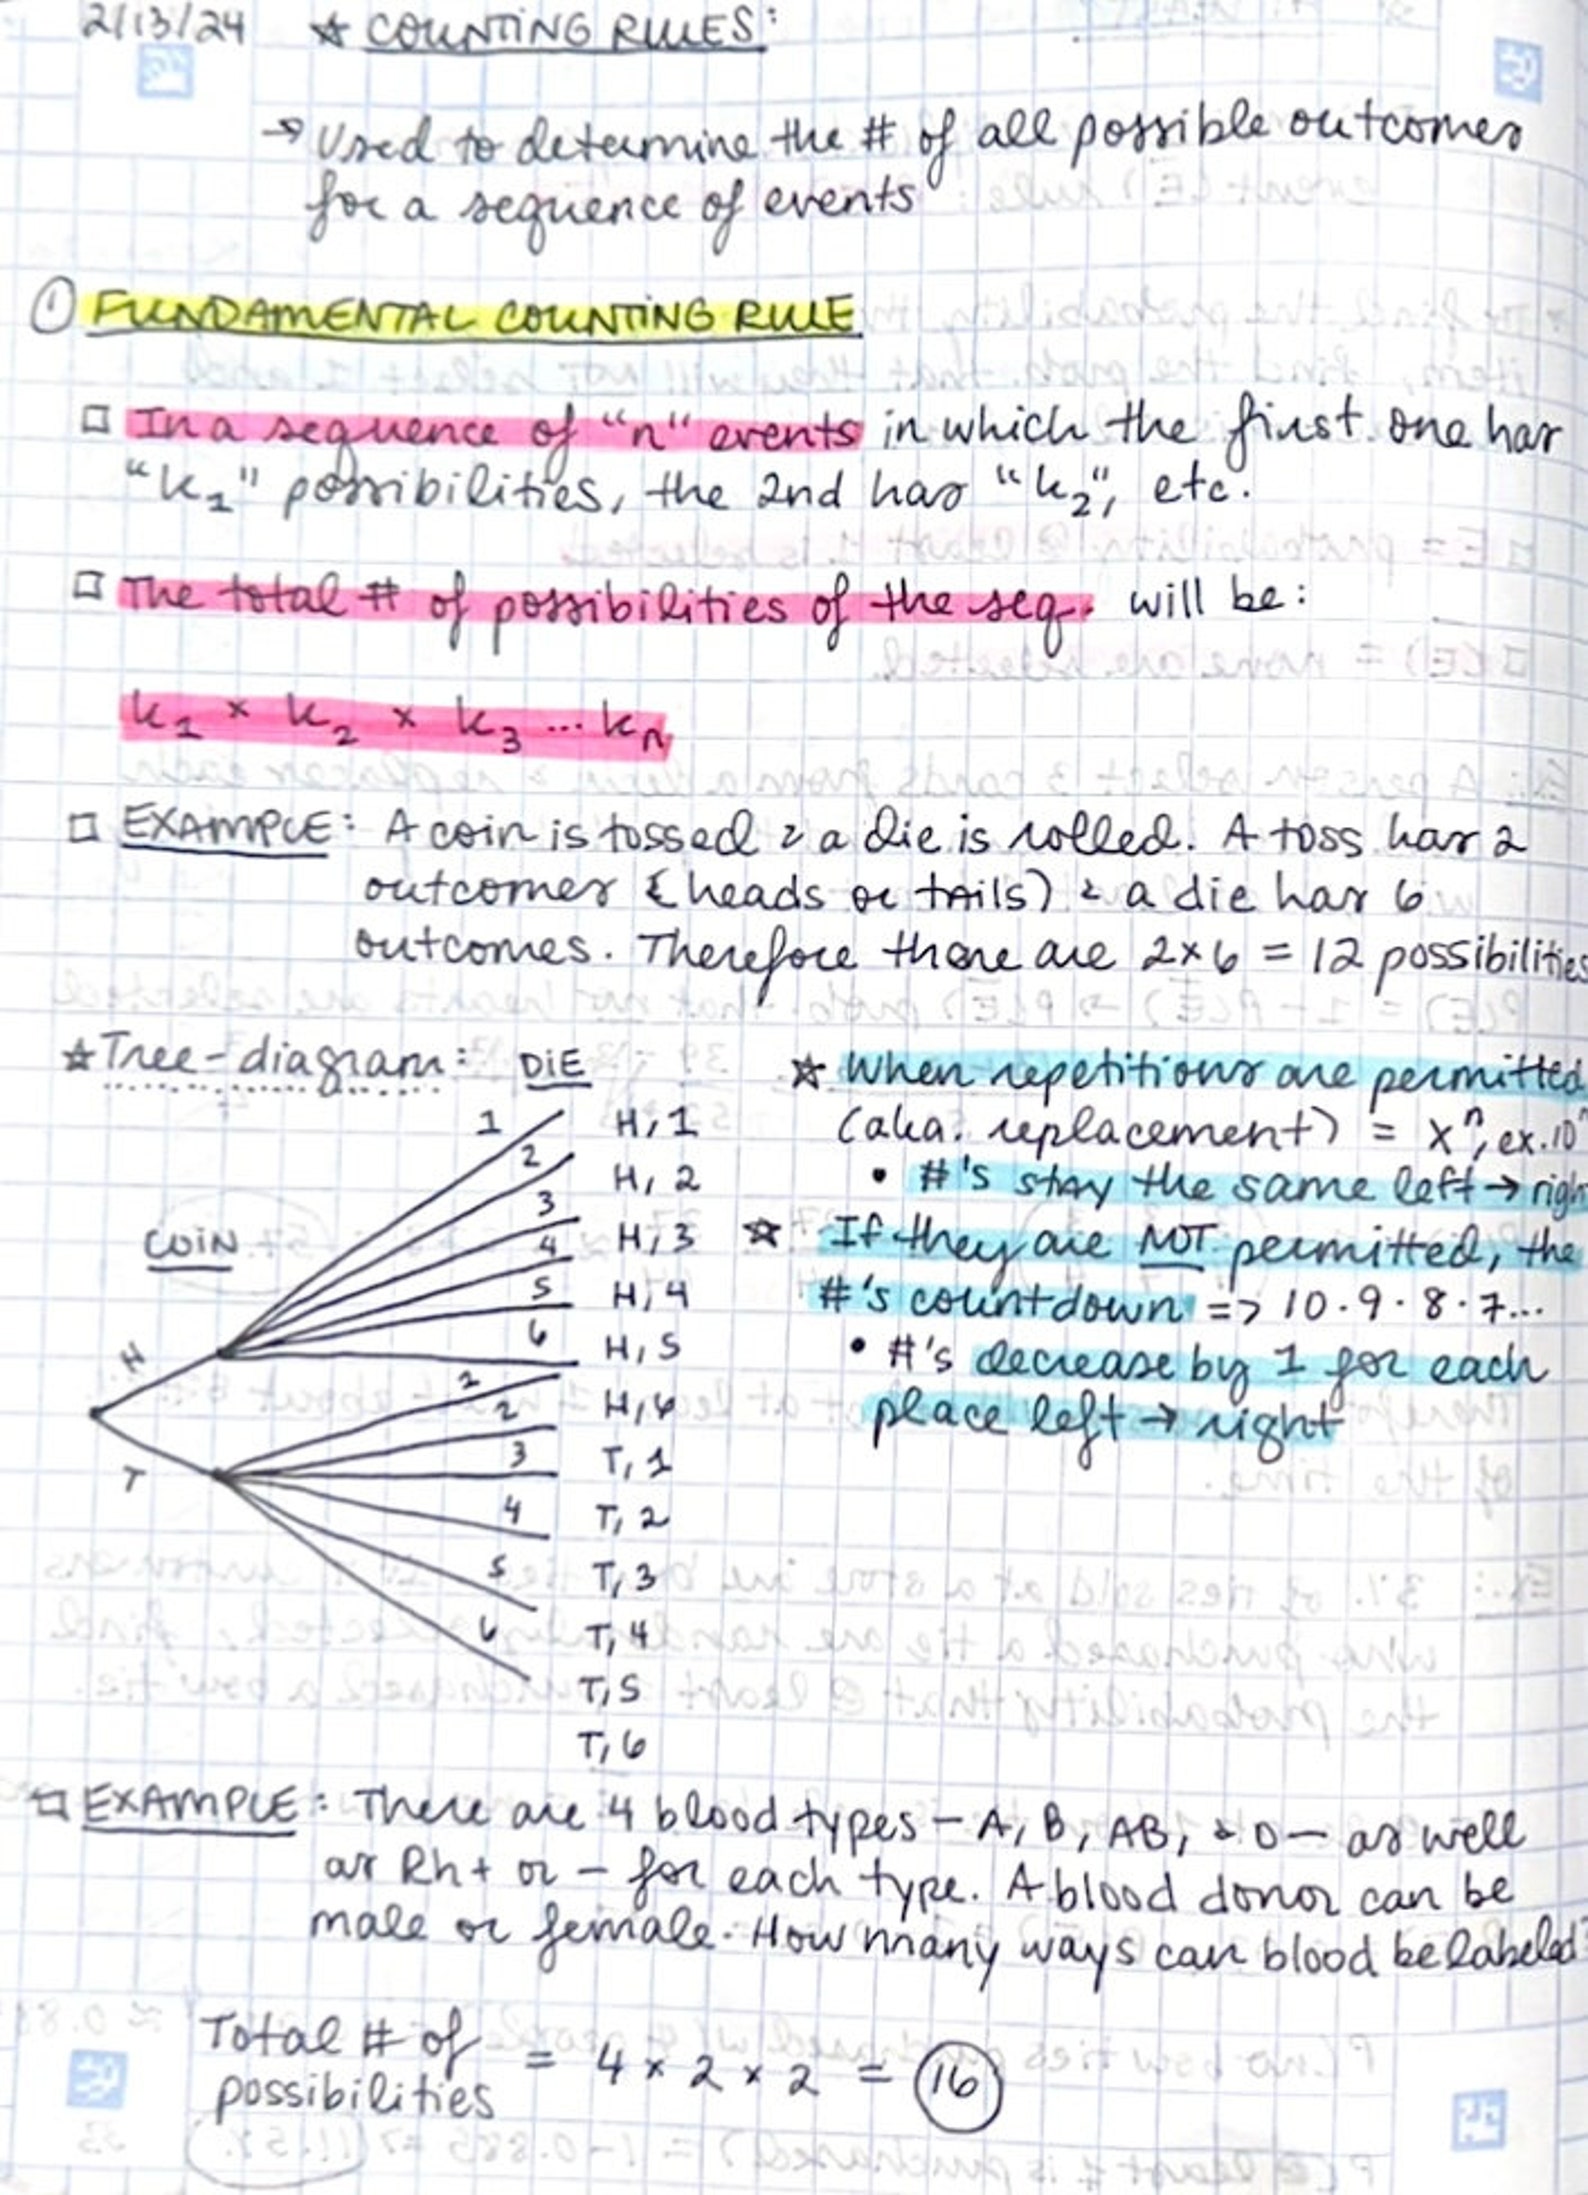 2/13/24 ☆ COUNTING RULES:
→ Used to determine the # of all possible outcomes
for a sequence of events
① FUNDAMENTAL COUNTING RULE
□ In a sequence of "n" events in which the first one has
"k₁" possibilities, the 2nd has "k₂", etc.
□ The total # of possibilities of the seq. will be:
k₁ × k₂ × k₃ ... kₙ
□ EXAMPLE: A coin is tossed & a die is rolled. A toss has 2
outcomes (heads or tails) & a die has 6
outcomes. Therefore there are 2×6 = 12 possibilities
☆ Tree-diagram: DIE
COIN
H
T
1
2
3
4
5
6
1
2
3
4
5
6
H, 1
H, 2
H, 3
H, 4
H, 5
H, 6
T, 1
T, 2
T, 3
T, 4
T, 5
T, 6
☆ When repetitions are permitted
(aka. replacement) = xⁿ, ex. 10ⁿ
• #'s stay the same left → right
☆ If they are NOT permitted, the
#'s countdown => 10·9·8·7...
• #'s decrease by 1 for each
place left → right
□ EXAMPLE: There are 4 blood types - A, B, AB, & O - as well
as Rh + or - for each type. A blood donor can be
male or female. How many ways can blood be labeled?
Total # of
possibilities = 4 × 2 × 2 = 16